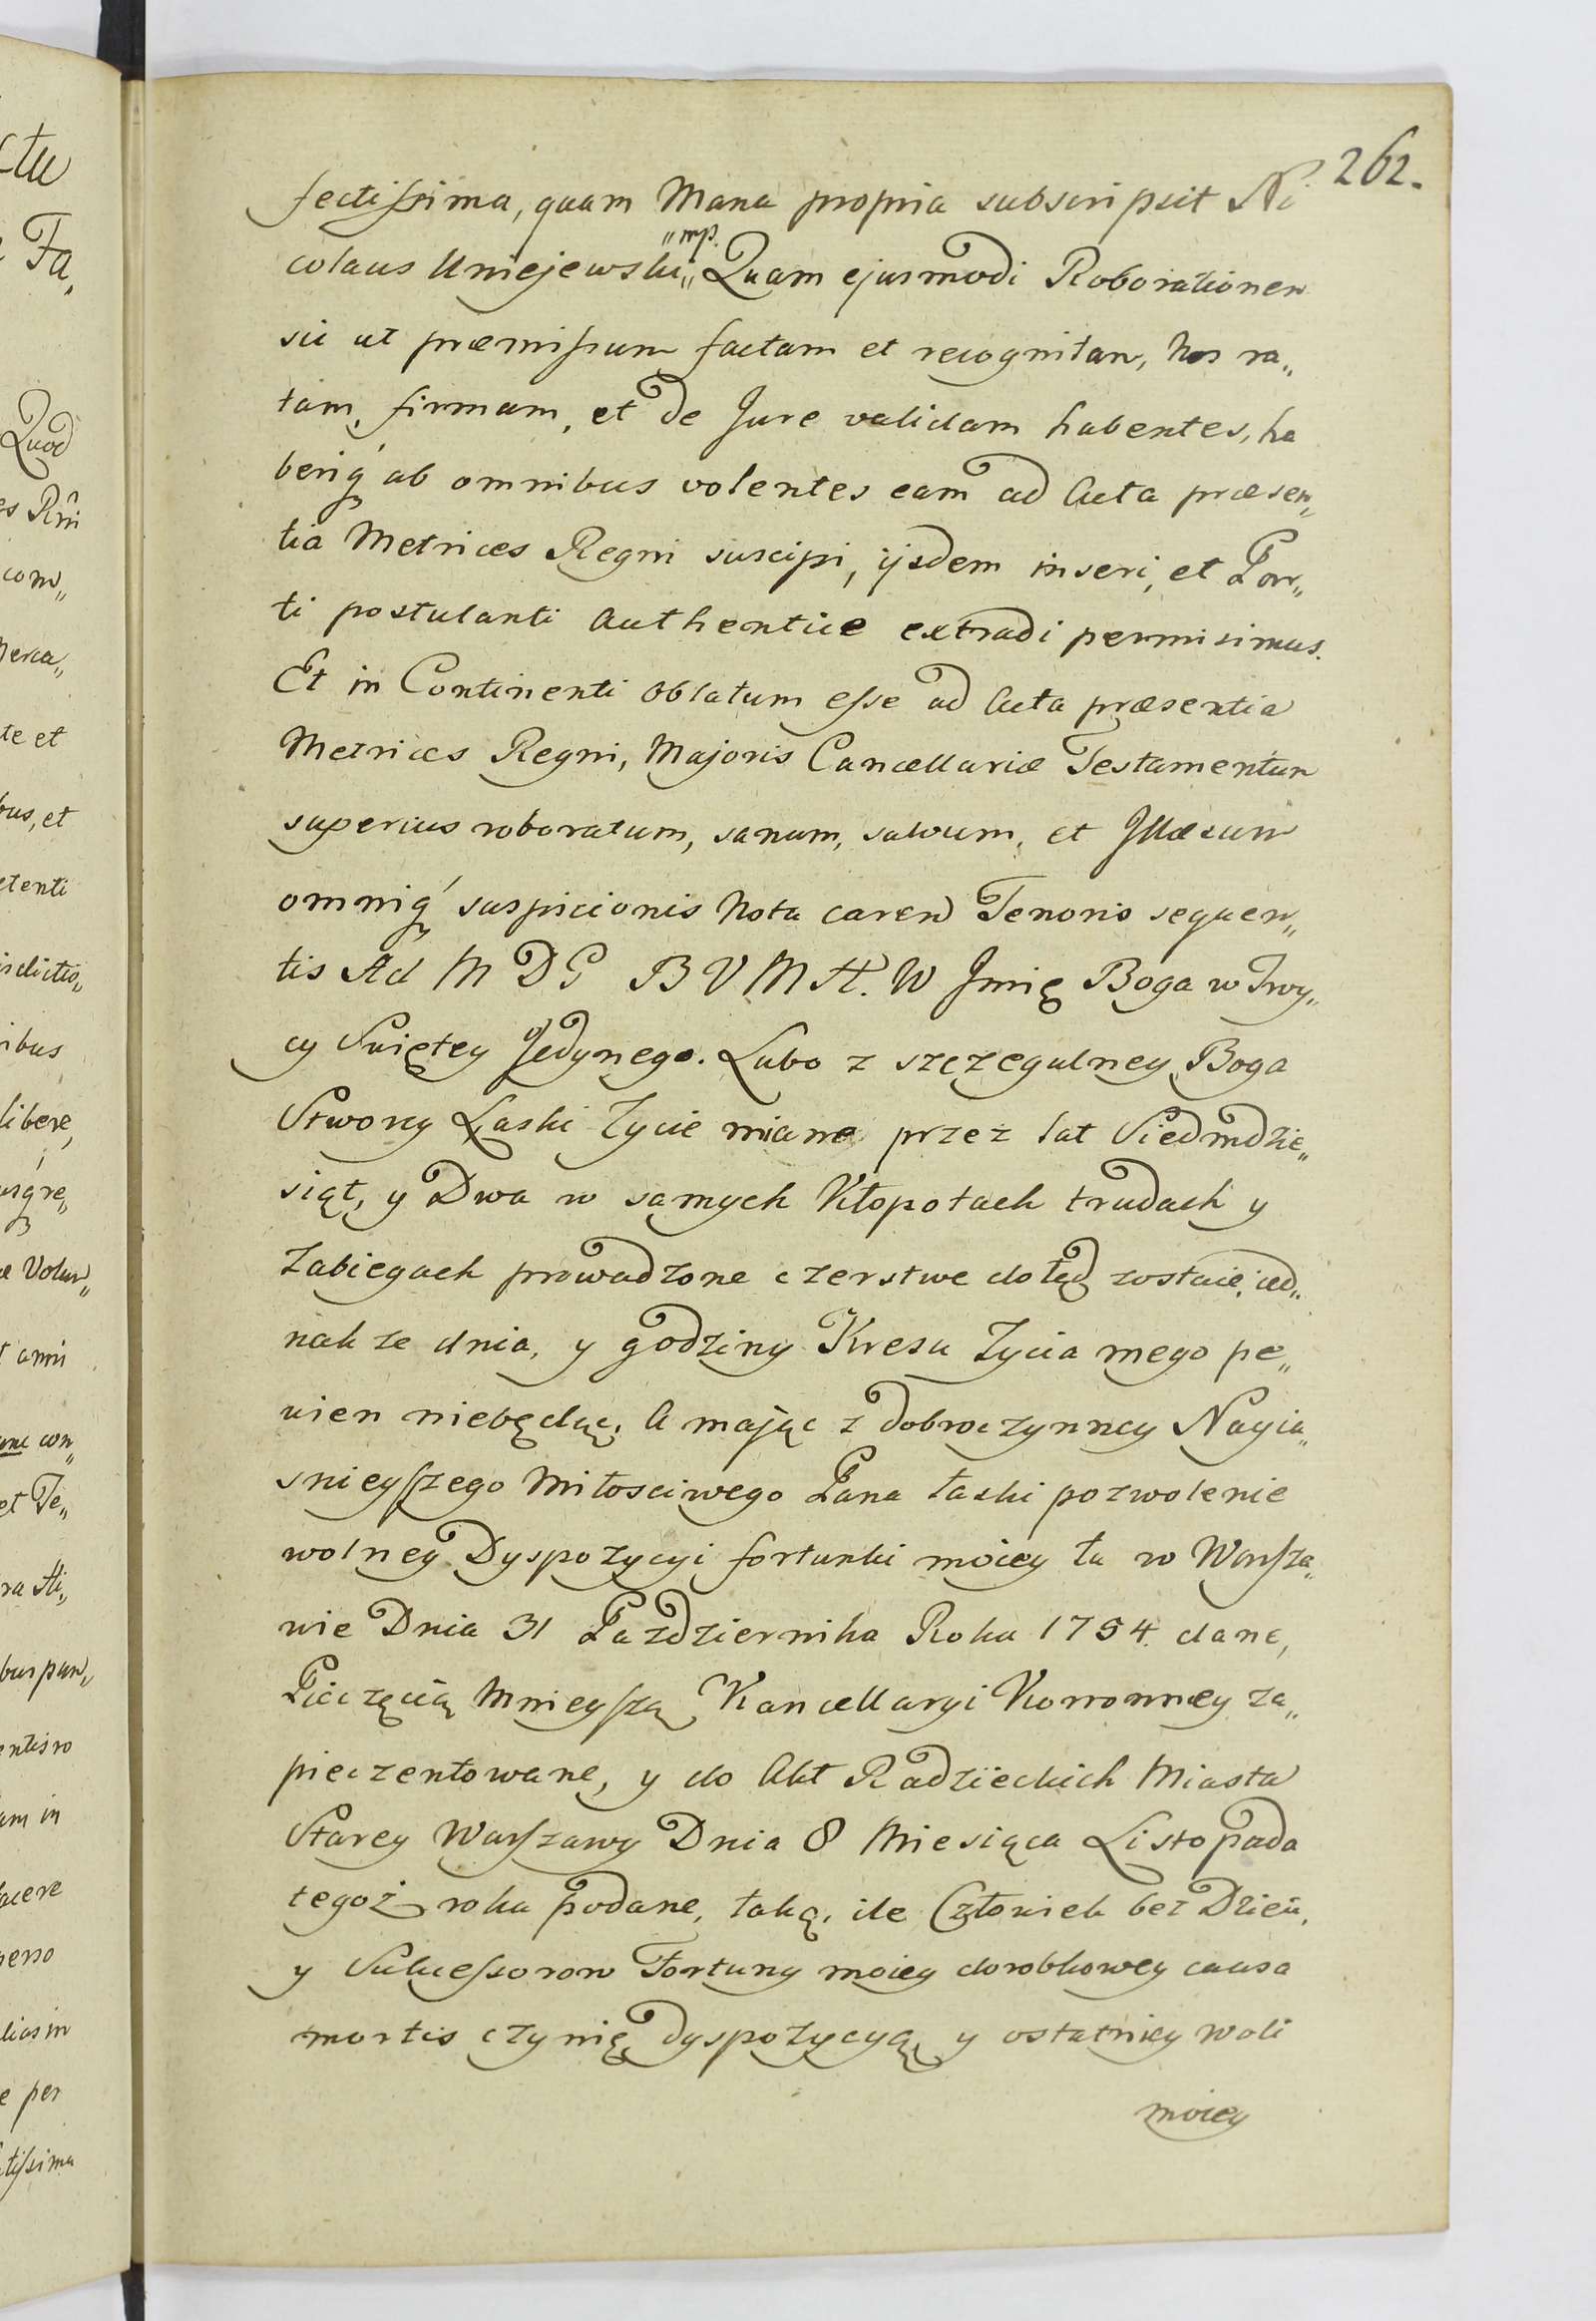 262.
fectissima, quam Manu propria subscripsit Ni
colaus Uniejewski„ mp. Quam ejusmodi Roborationem
sic ut præmissum factam et recognitam, Nos ra„
tam, firmam, et de Jure validam habentes, ha
beriq́ ab omnibus volentes eam ad Acta præsen„
tia Metrices Regni suscipi, ijsdem inseri, et Par„
ti postulanti Authentice extradi permisimus.
Et in Continenti Oblatum esse ad Acta præsentia
Metrices Regni, Majoris Cancellariæ Testamentum
superius roboratum, sanum, salvum, et Illæsum
omniq́ suspicionis Nota caren Tenoris sequen„
tis Ad M D G B V M H. W Jmię Boga w Trvy„
cy Swiętey Jedynego. Lubo z szczegulney Boga
Stworcy Łaski Zycie miane przez lat Siedmdzie„
siąt, y Dwa w samych Kłopotach trudach y
Zabiegach prowadzone czerstwe dotąd zostaie, ied„
nak ze dnia, y godziny Kresu Zycia mego pe„
wien niebędąc, A mając z dobroczynney Nayia„
snieyszego Miłosciwego Pana łaski pozwolenie
wolney Dyspozycyi fortunki moiey tu w Warsza„
wie Dnia 31 Pazdziernika Roku 1754. dane,
Pieczęcią Mnieyszą Kancellaryi Koronney za„
pieczentowane, y do Akt Radzieckich Miasta
Starey Warszawy Dnia 8 Miesiąca Listopada
tegoż roku podane, taką, ile Człowiek bez Dzieci,
y Sukcessorow Fortuny moiey dorobkowey causa
mortis czynię dyspozycyą, y ostatniey woli
moiey